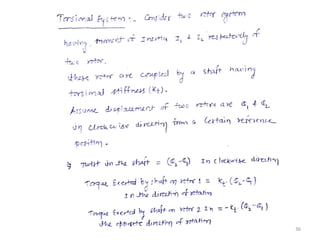 Torsional System :- Consider two rotor system
having moment of Inertia I1 & I2 respectively of
two rotor.
these rotor are coupled by a shaft having
torsional stiffness (Kt).
Assume displacement of two rotors are θ1 & θ2
in clockwise direction from a certain reference
position.
Twist in the shaft = (θ2-θ1) In clockwise direction
Torque Exerted by shaft on rotor 1 = Kt (θ2-θ1)
In the direction of rotation
Torque Exerted by shaft on rotor 2 In = -Kt (θ2-θ1)
the opposite direction of rotation
36